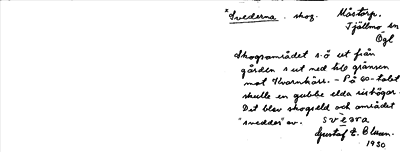 *Svederna. skog. Måstorp.
Tjällmo sn
Ögl
Skogsområdet s.ö ut från
gården s ut ned till gränsen
mot Kvarnkärr. - På 60-talet
skulle en gubbe elda rishögar.
Det blev skogseld och området
"sveddes" av. svèɜra
Gustaf E. Blman.
1930